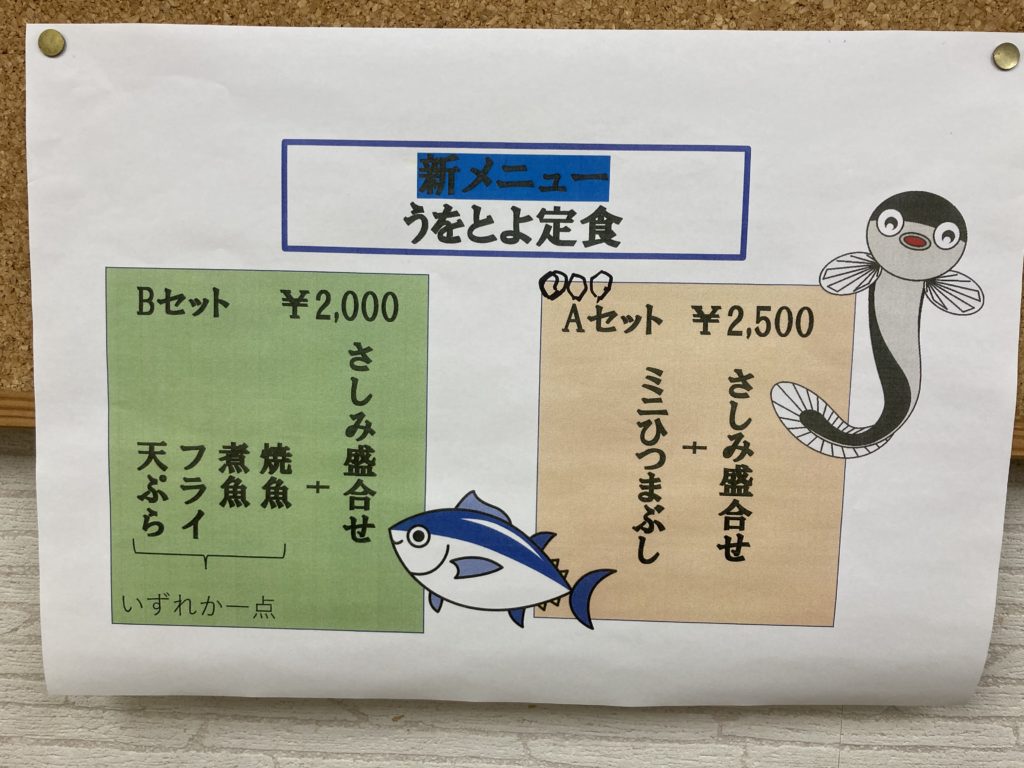 新メニュー
うをとよ定食
Aセット ￥2,500
さしみ盛合せ
+
ミニひつまぶし
Bセット ￥2,000
さしみ盛合せ
+
焼魚
煮魚
フライ
天ぷら
いずれか一点